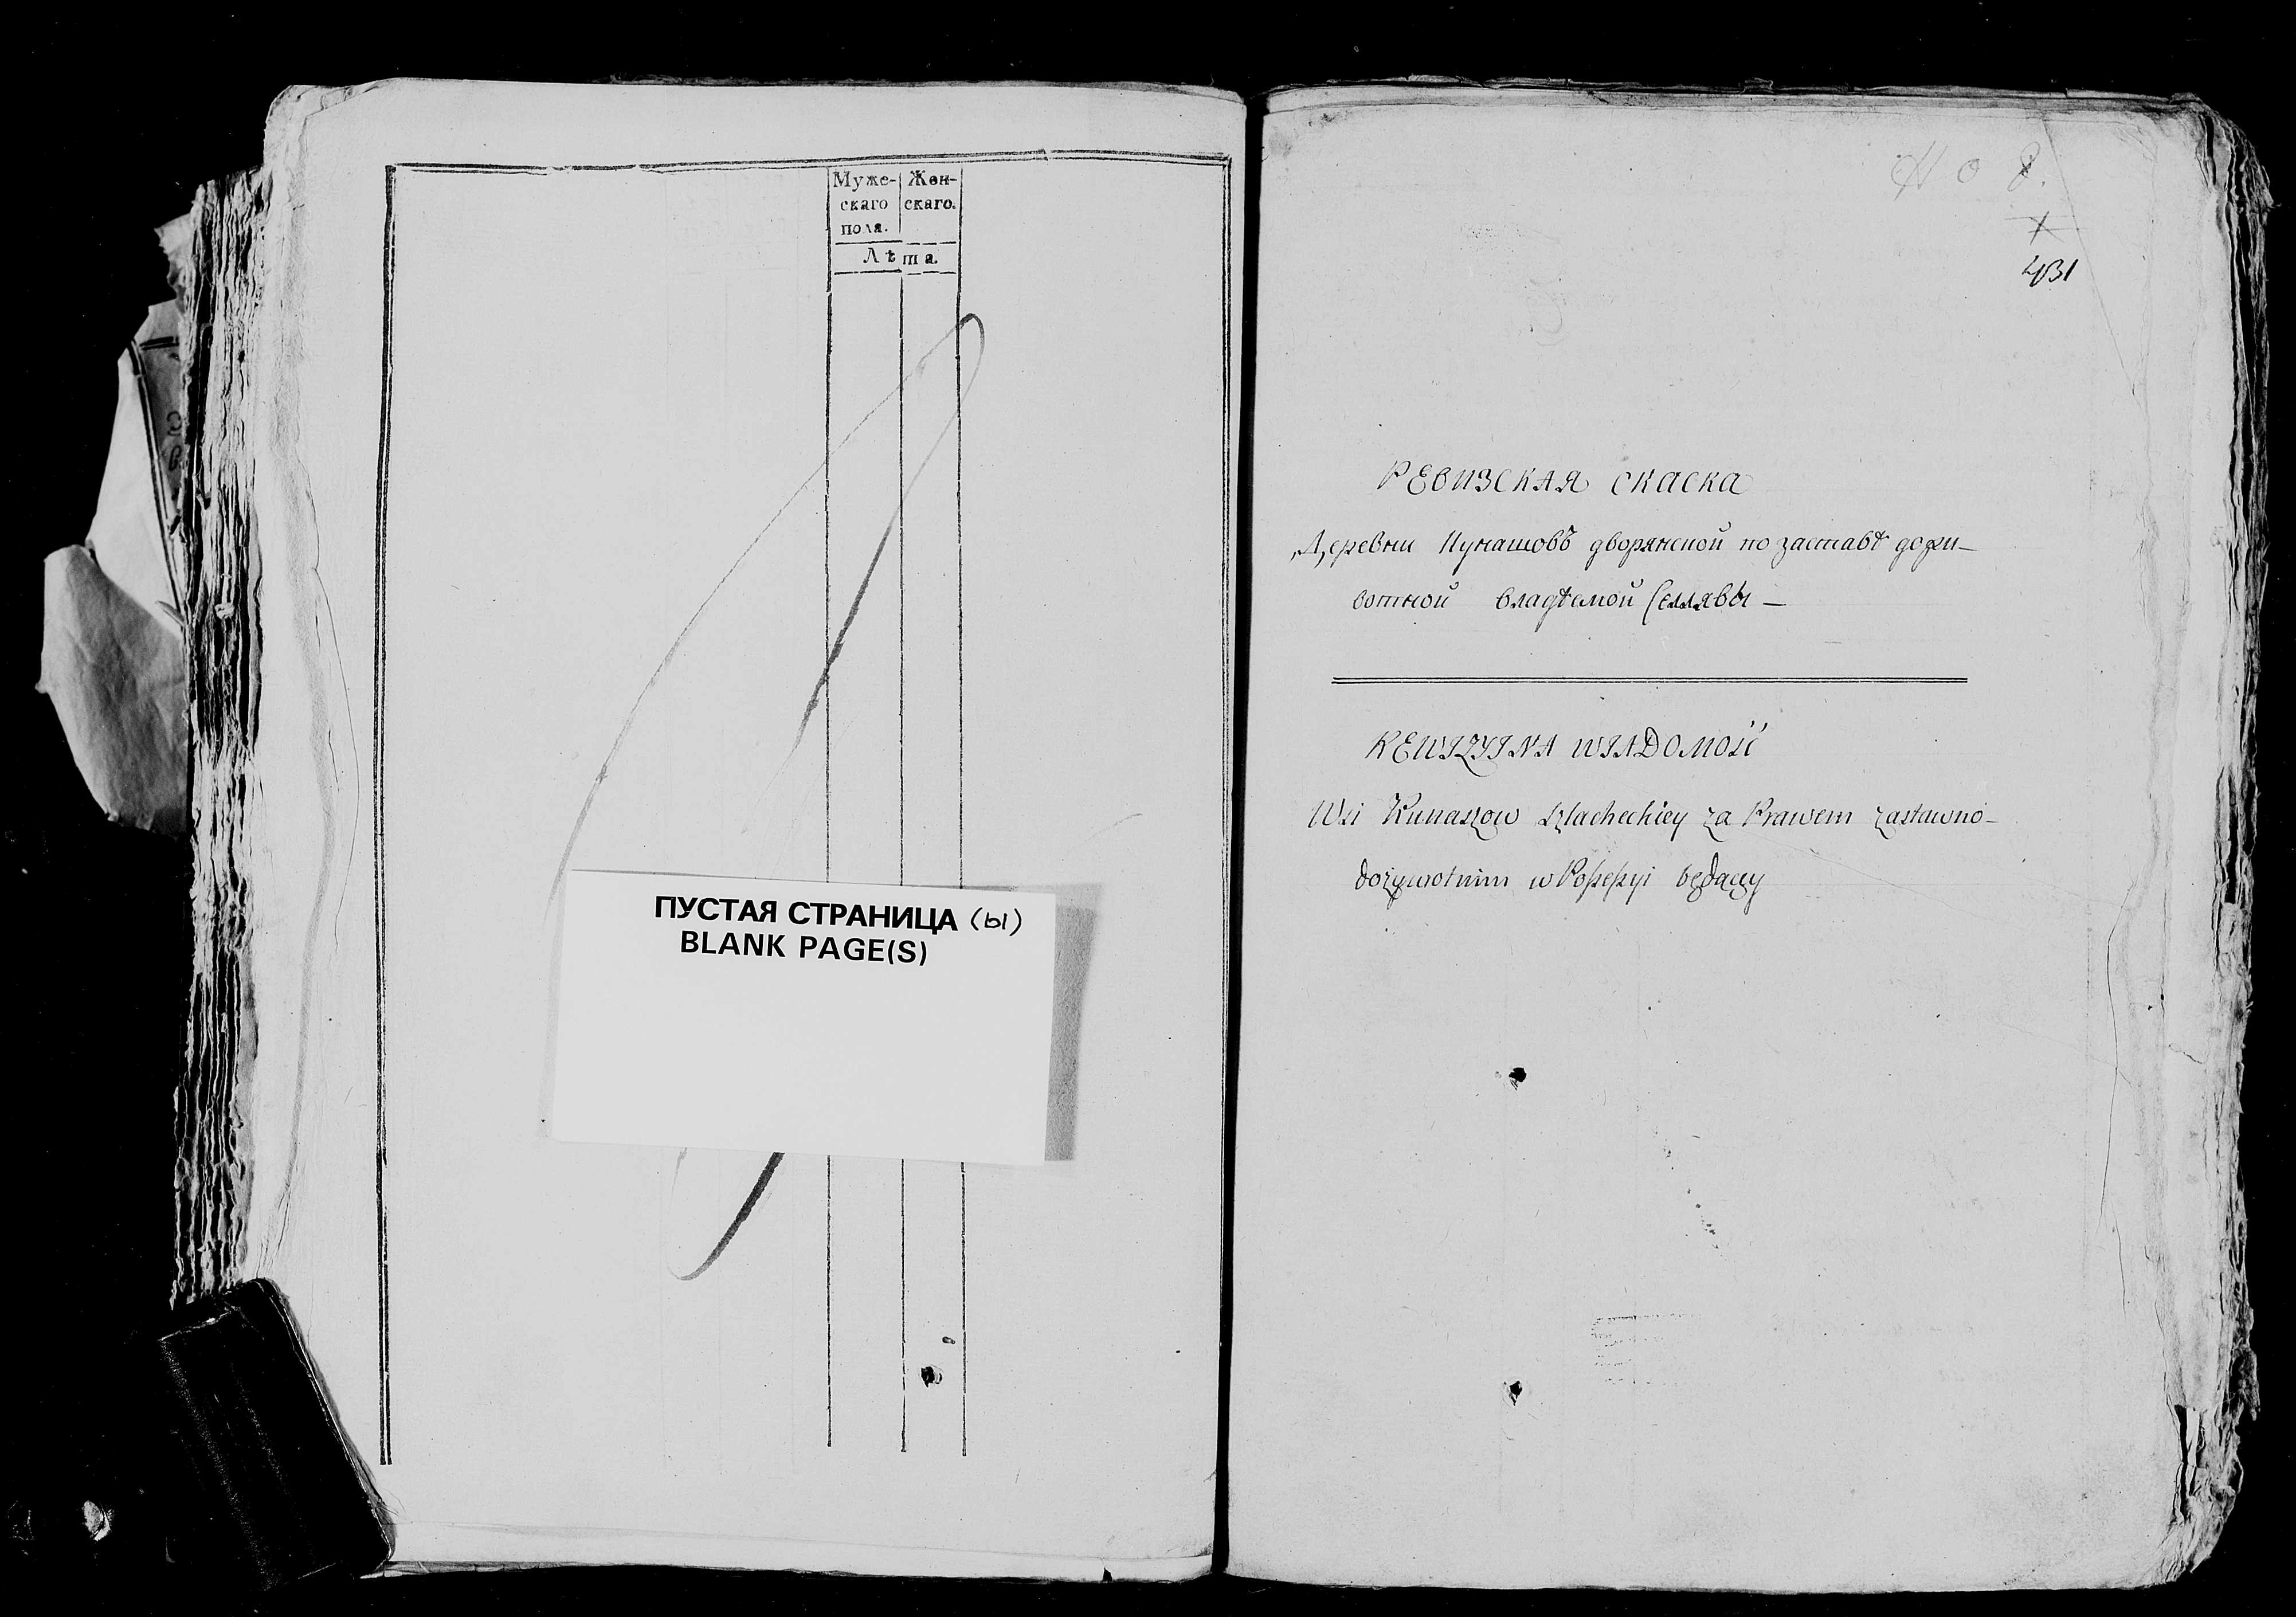 Муже- Жен-
скаго скаго.
пола.
Лѣта.
ПУСТАЯ СТРАНИЦА (ы)
BLANK PAGE(S)
431
РЕВИЗСКАЯ СКАСКА
Деревни Кунашовъ дворянской по заставѣ дожи-
вотной владѣемой Селявы —
REWIZYINA WIADOMOŚĆ
Wsi Kunaszow szlacheckiey za Prawem zastawno-
dożywotnim w Possessyi będącey